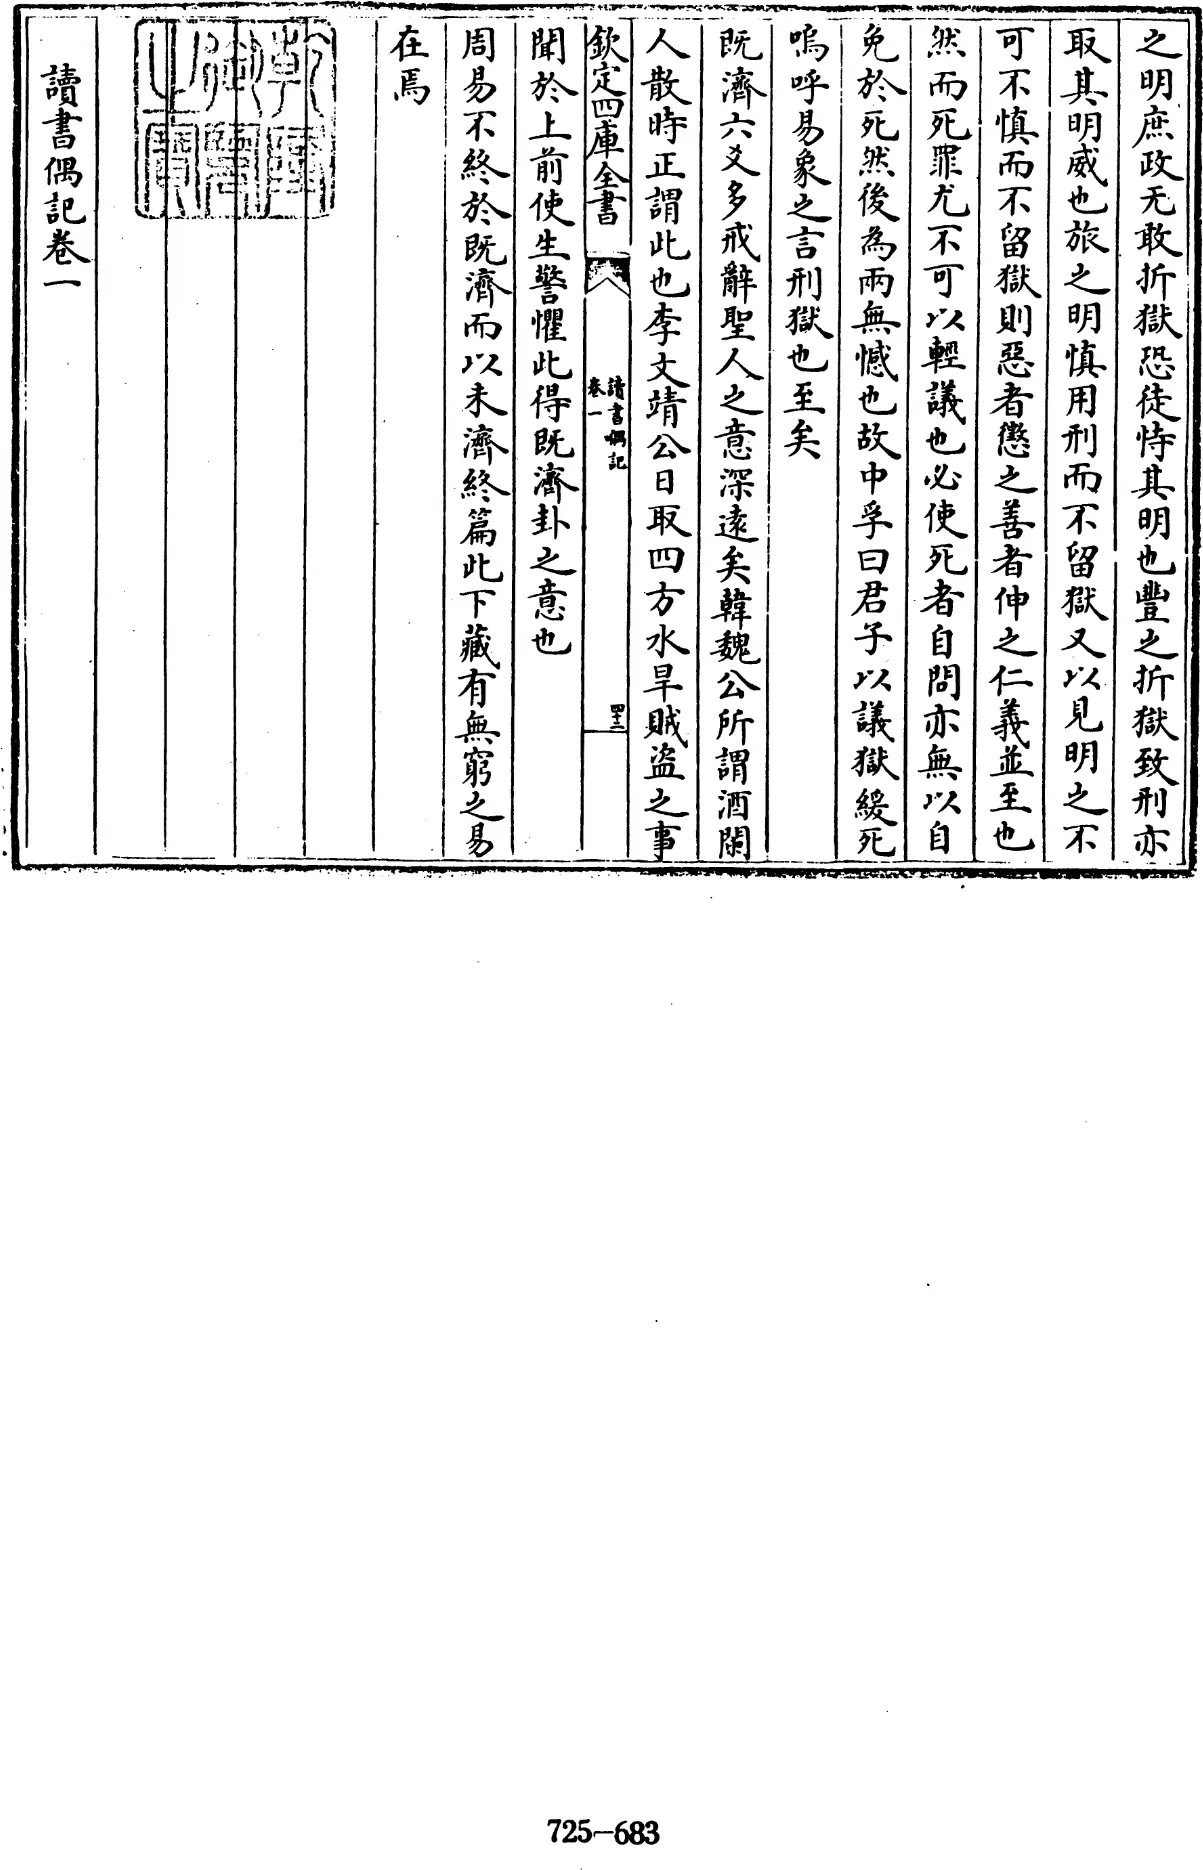 之明庶政无敢折獄恐徒恃其明也豐之折獄致刑亦
取其明威也旅之明慎用刑而不留獄又以見明之不
可不慎而不留獄則惡者懲之善者伸之仁義並至也
然而死罪尤不可以輕議也必使死者自問亦無以自
免於死然後為兩無憾也故中孚曰君子以議獄緩死
嗚呼易象之言刑獄也至矣
既濟六爻多戒辭聖人之意深遠矣韓魏公所謂酒闌
人散時正謂此也李文靖公日取四方水旱賊盜之事
欽定四庫全書
讀書偶記
卷一
聞於上前使生警懼此得既濟卦之意也
周易不終於既濟而以未濟終篇此下藏有無窮之易
在焉
乾隆
御覽
之寶
讀書偶記卷一
725-683